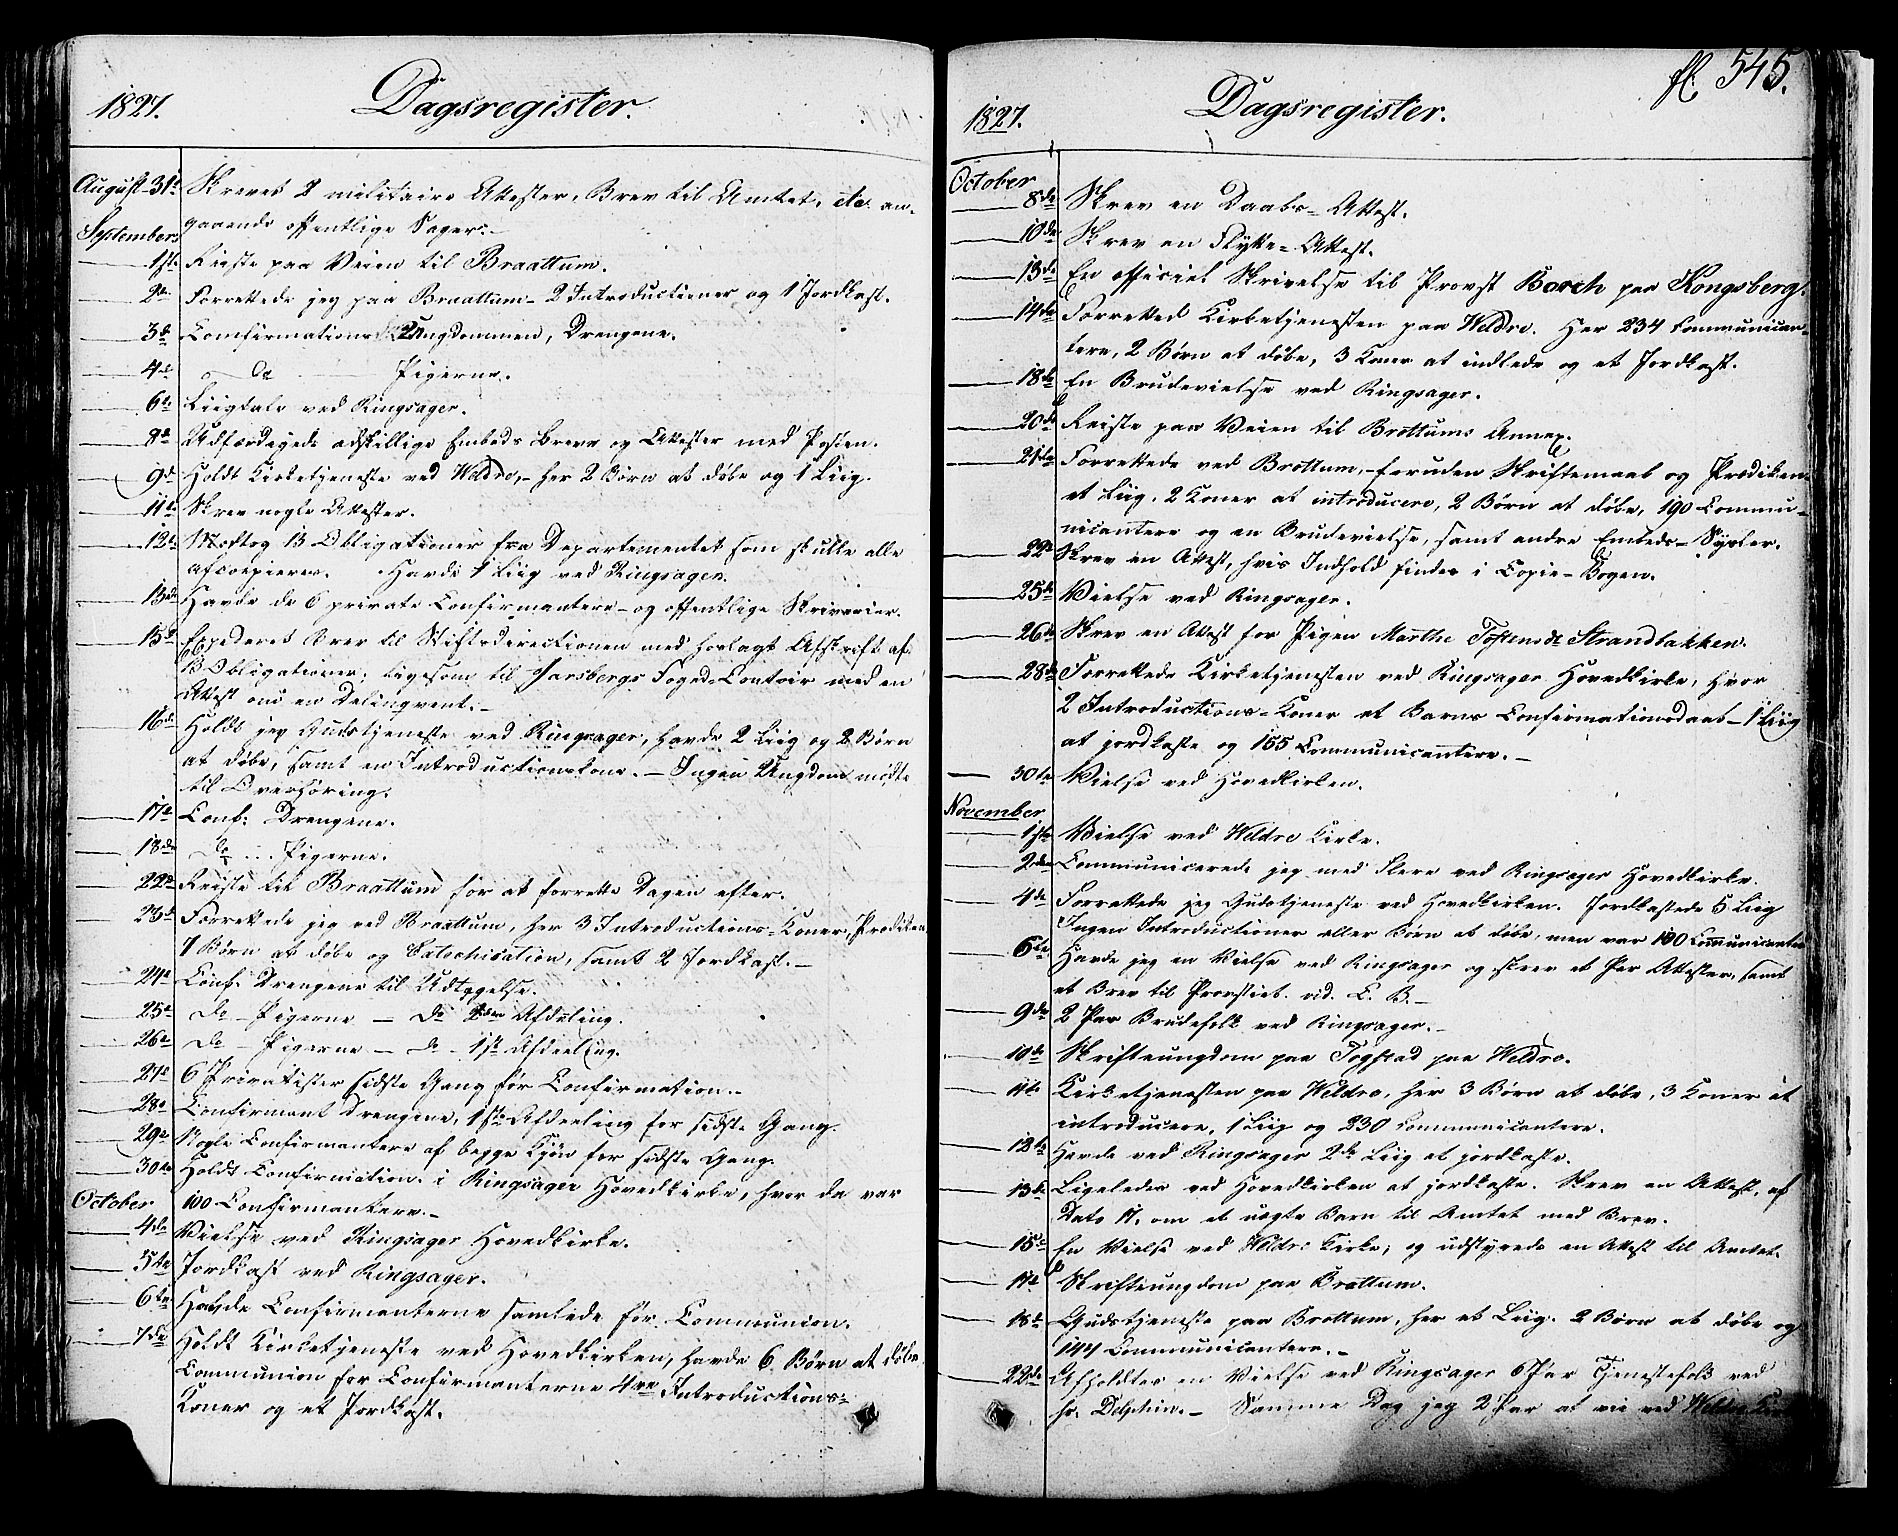 1827.
Dagsregister.
August 31te Skreves 2 militaire Attester, Brev til Amtet, etc. an-
gaaende offentlige Sager.-
September
1ste Reiste paa Veien til Braattum.
2den Forrettede jeg paa Braattum- 2 Introductioner og 1 Jordkast.
3die Confirmations Ungdommen, Drengene.
4de - Do - Pigerne.
6te Liigtale ved Ringsager.
8de Udfærdigede adskillige Embeds Breve og Attester med Posten.
9de Holdt Kirketjeneste ved Weldre,- her 2 Børn at døbe og 1 Liig.
11te Skrev nogle Attester.
12te Modtog 13 Obligationer fra Departementet som skulle alle
afcopieres. Havde 1 Liig ved Ringsager.
13de Havde de 6 private Confirmantere- og offentlige Skriverier.
15de Expederet Brev til Stiftsdirectionen med forlagt Afskrift af
13 Obligationer; ligesom til Jarlsbergs Foged-Contoir med en
Attest om en Delinqvent.-
16de Holdt jeg Gudstjeneste ved Ringsager, havde 2 Liig og 2 Børn
at døbe, samt en Introductionskone.- Ingen Ungdom mødte
til Overhøring.
17de Conf: Drengene.
18de do ... Pigerne.
22de Reiste til Braattum for at forrette Dagen efter.
23de Forrettede jeg ved Braattum, her 3 Introductions-Koner, Prediken,
7 Børn at døbe og Catechisation, samt 2 Jordkast.-
24de Conf: Drengene til Udtegelse.
25de do - Pigerne - do 2den Afdeling.
26de do - Pigerne - do - 1ste Afdeeling.
27de 6 Privatister sidste Gang før Confirmation.-
28de Confirmant Drengene, 1ste Afdeeling for sidste Gang.
29de Nogle Confirmantere af begge Kjøn for sidste Gang.
30te Holdt Confirmation i Ringsager Hovedkirke, hvor da var
October 100 Confirmantere.-
4de Vielse ved Ringsager Hovedkirke.
5te Jordkast ved Ringsager.
6te Havde Confirmanterne samlede før Communion.
7de Holdt Kirketjeneste ved Hovedkirken, havde 6 Børn at døbe.
Communion for Confirmanterne 4re Introductions-
Koner og et Jordkast.
fl. 545.
1827.
Dagsregister.
October
8de Skrev en Daabs-Attest.
10de Skrev en Flytte-Attest.
13de En officiel Skrivelse til Provst Borch paa Kongsberg.
14de Forretted Kirketjenesten paa Weldre. Her 234 Communican-
tere, 2 Børn at døbe, 3 Koner at indlede og et Jordkast.
18de En Brudevielse ved Ringsager.
20de Reiste paa Veien til Brøttums Annex.
21de Forrettede ved Brottum,- foruden Skriftemaal og Prædiken
et Liig, 2 Koner at introducere, 2 Børn at døbe, 190 Commu-
nicantere og en Brudevielse, samt andre Embeds-Sysler.
22de Skrev en Attest, hvis Indhold findes i Copie-Bogen.
25de Vielse ved Ringsager.
26de Skrev en Attest for Pigen Marthe Tostensdr Strandbakken.
28de Forrettede Kirketjenesten ved Ringsager Hovedkirke, hvor
2 Introductions-Koner et Barns Confirmationsdaab- 1 Liig
at jordkaste og 155 Communicantere.-
30te Vielse ved Hovedkirken.
November
1ste Vielse ved Weldre Kirke.
2den Communicerede jeg med Flere ved Ringsager Hovedkirke.
4de Forrettede jeg Gudstjeneste ved Hovedkirken. Jordkastede 5 Liig
Ingen Introductioner eller Børn at døbe, men var 100 Communicantere
6te Havde jeg en Vielse ved Ringsager og skrev et Par Attester, samt
et Brev til Provstiet vid. C. B.-
9de 2 Par Brudefolk ved Ringsager.-
10de Skrifteungdom paa Togstad paa Weldre.
11te Kirketjenesten paa Weldre, her 3 Børn at døbe, 3 Koner at
introducere, 1 Liig og 230 Communicantere.
12te Havde ved Ringsager 2de Liig at jordkaste.
13de Ligeledes ved Hovedkirken at jordkaste. Skrev en Attest, af
Dato 17, om et uægte Barn til Amtet med Brev.
15de En Vielse ved Weldre Kirke; og udstyrede en Attest til Amtet.
17de Skrifteungdom paa Brøttum.
18de Gudstjeneste paa Brottum, her et Liig. 2 Børn at døbe og
144 Communicantere.-
22de Afholdtes en Vielse ved Ringsager 6 Par Tjenestefolk ved
hr. Delphin.- Samme Dag jeg 2 Par at vie ved Weldre Kirke